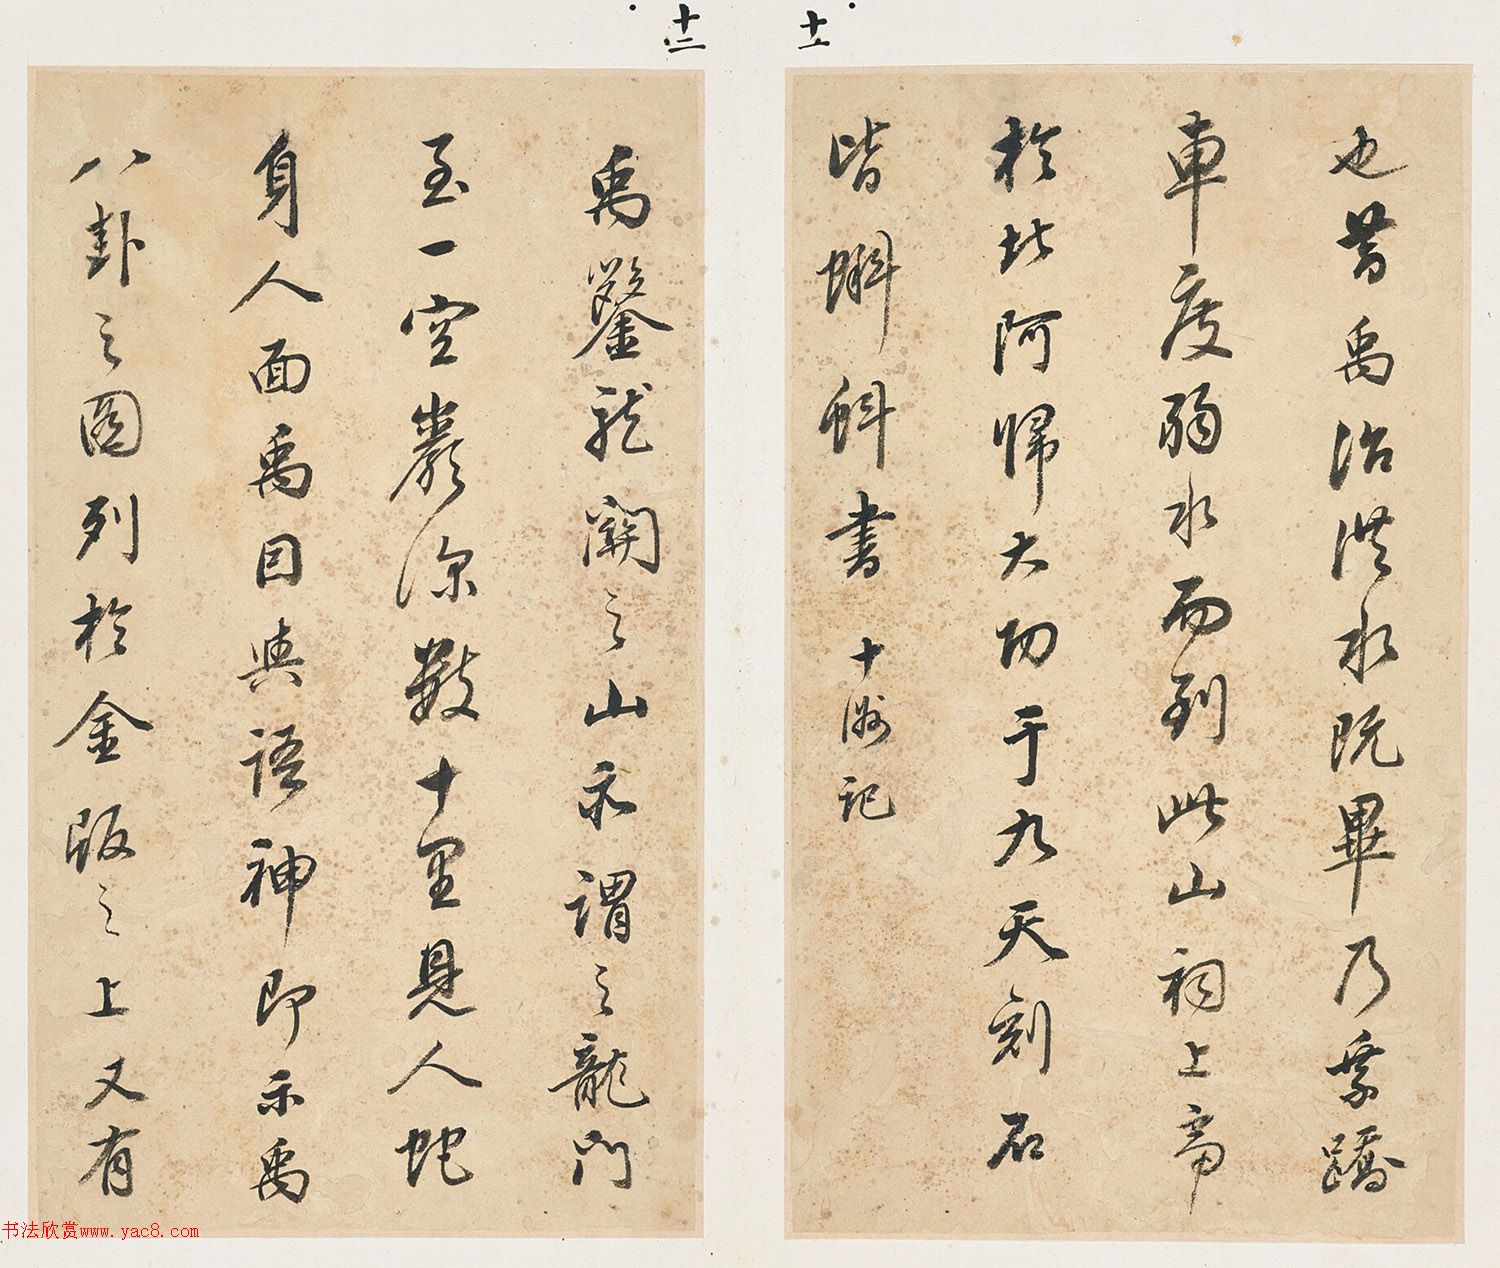 十一
也昔禹治洪水既畢乃乘蹻
車度弱水而到此山祠上帝
於北阿歸大功于九天刻石
皆蝌蚪書 十洲記
十二
禹鑿龍關之山亦謂之龍門
至一空巖深數十里見人蛇
身人面禹因與語神即示禹
八卦之圖列於金版之上又有
书法欣赏www.yac8.com